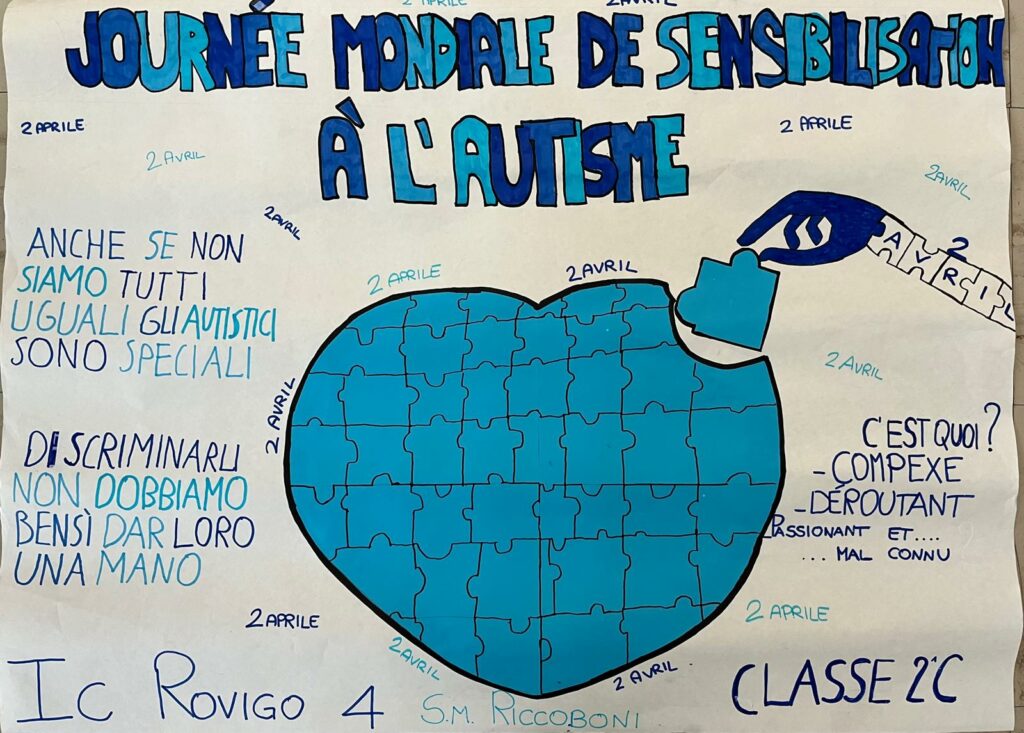 2 APRILE
2 AVRIL
JOURNÉE MONDIALE DE SENSIBILISATION
À L'AUTISME
2 APRILE
2 AVRIL
2 APRILE
2 AVRIL
2 AVRIL
ANCHE SE NON
SIAMO TUTTI
UGUALI GLI AUTISTICI
SONO SPECIALI
2 APRILE
2 AVRIL
2 AVRIL
2 AVRIL
2 AVRIL
DISCRIMINARLI
NON DOBBIAMO
BENSÌ DAR LORO
UNA MANO
C'EST QUOI?
-COMPEXE
-DÉROUTANT
PASSIONANT ET....
...MAL CONNU
2 APRILE
2 AVRIL
2 AVRIL
2 APRILE
IC ROVIGO 4
S.M. RICCOBONI
CLASSE 2°C